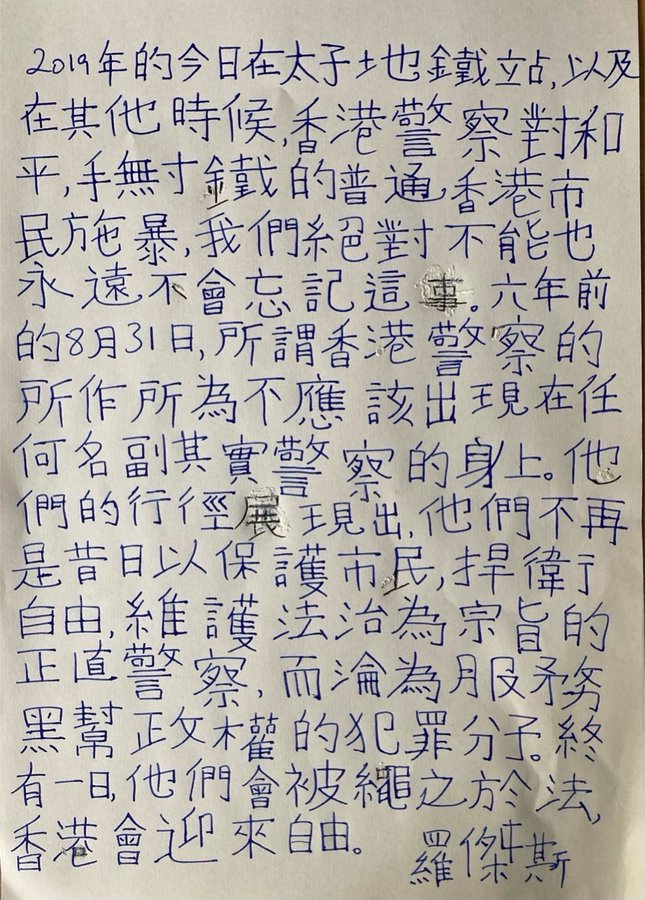 2019年的今日在太子地鐵站,以及
在其他時候,香港警察對和
平,手無寸鐵的普通,香港市
民施暴,我們絕對不能也
永遠不會忘記這事。六年前
的8月31日,所謂香港警察的
所作所為不應該出現在任
何名副其實警察的身上。他
們的行徑展現出,他們不再
是昔日以保護市民,捍衛
自由,維護法治為宗旨的
正直警察,而淪為服務
黑幫政權的犯罪分子。終
有一日,他們會被繩之於法,
香港會迎來自由。
羅傑斯